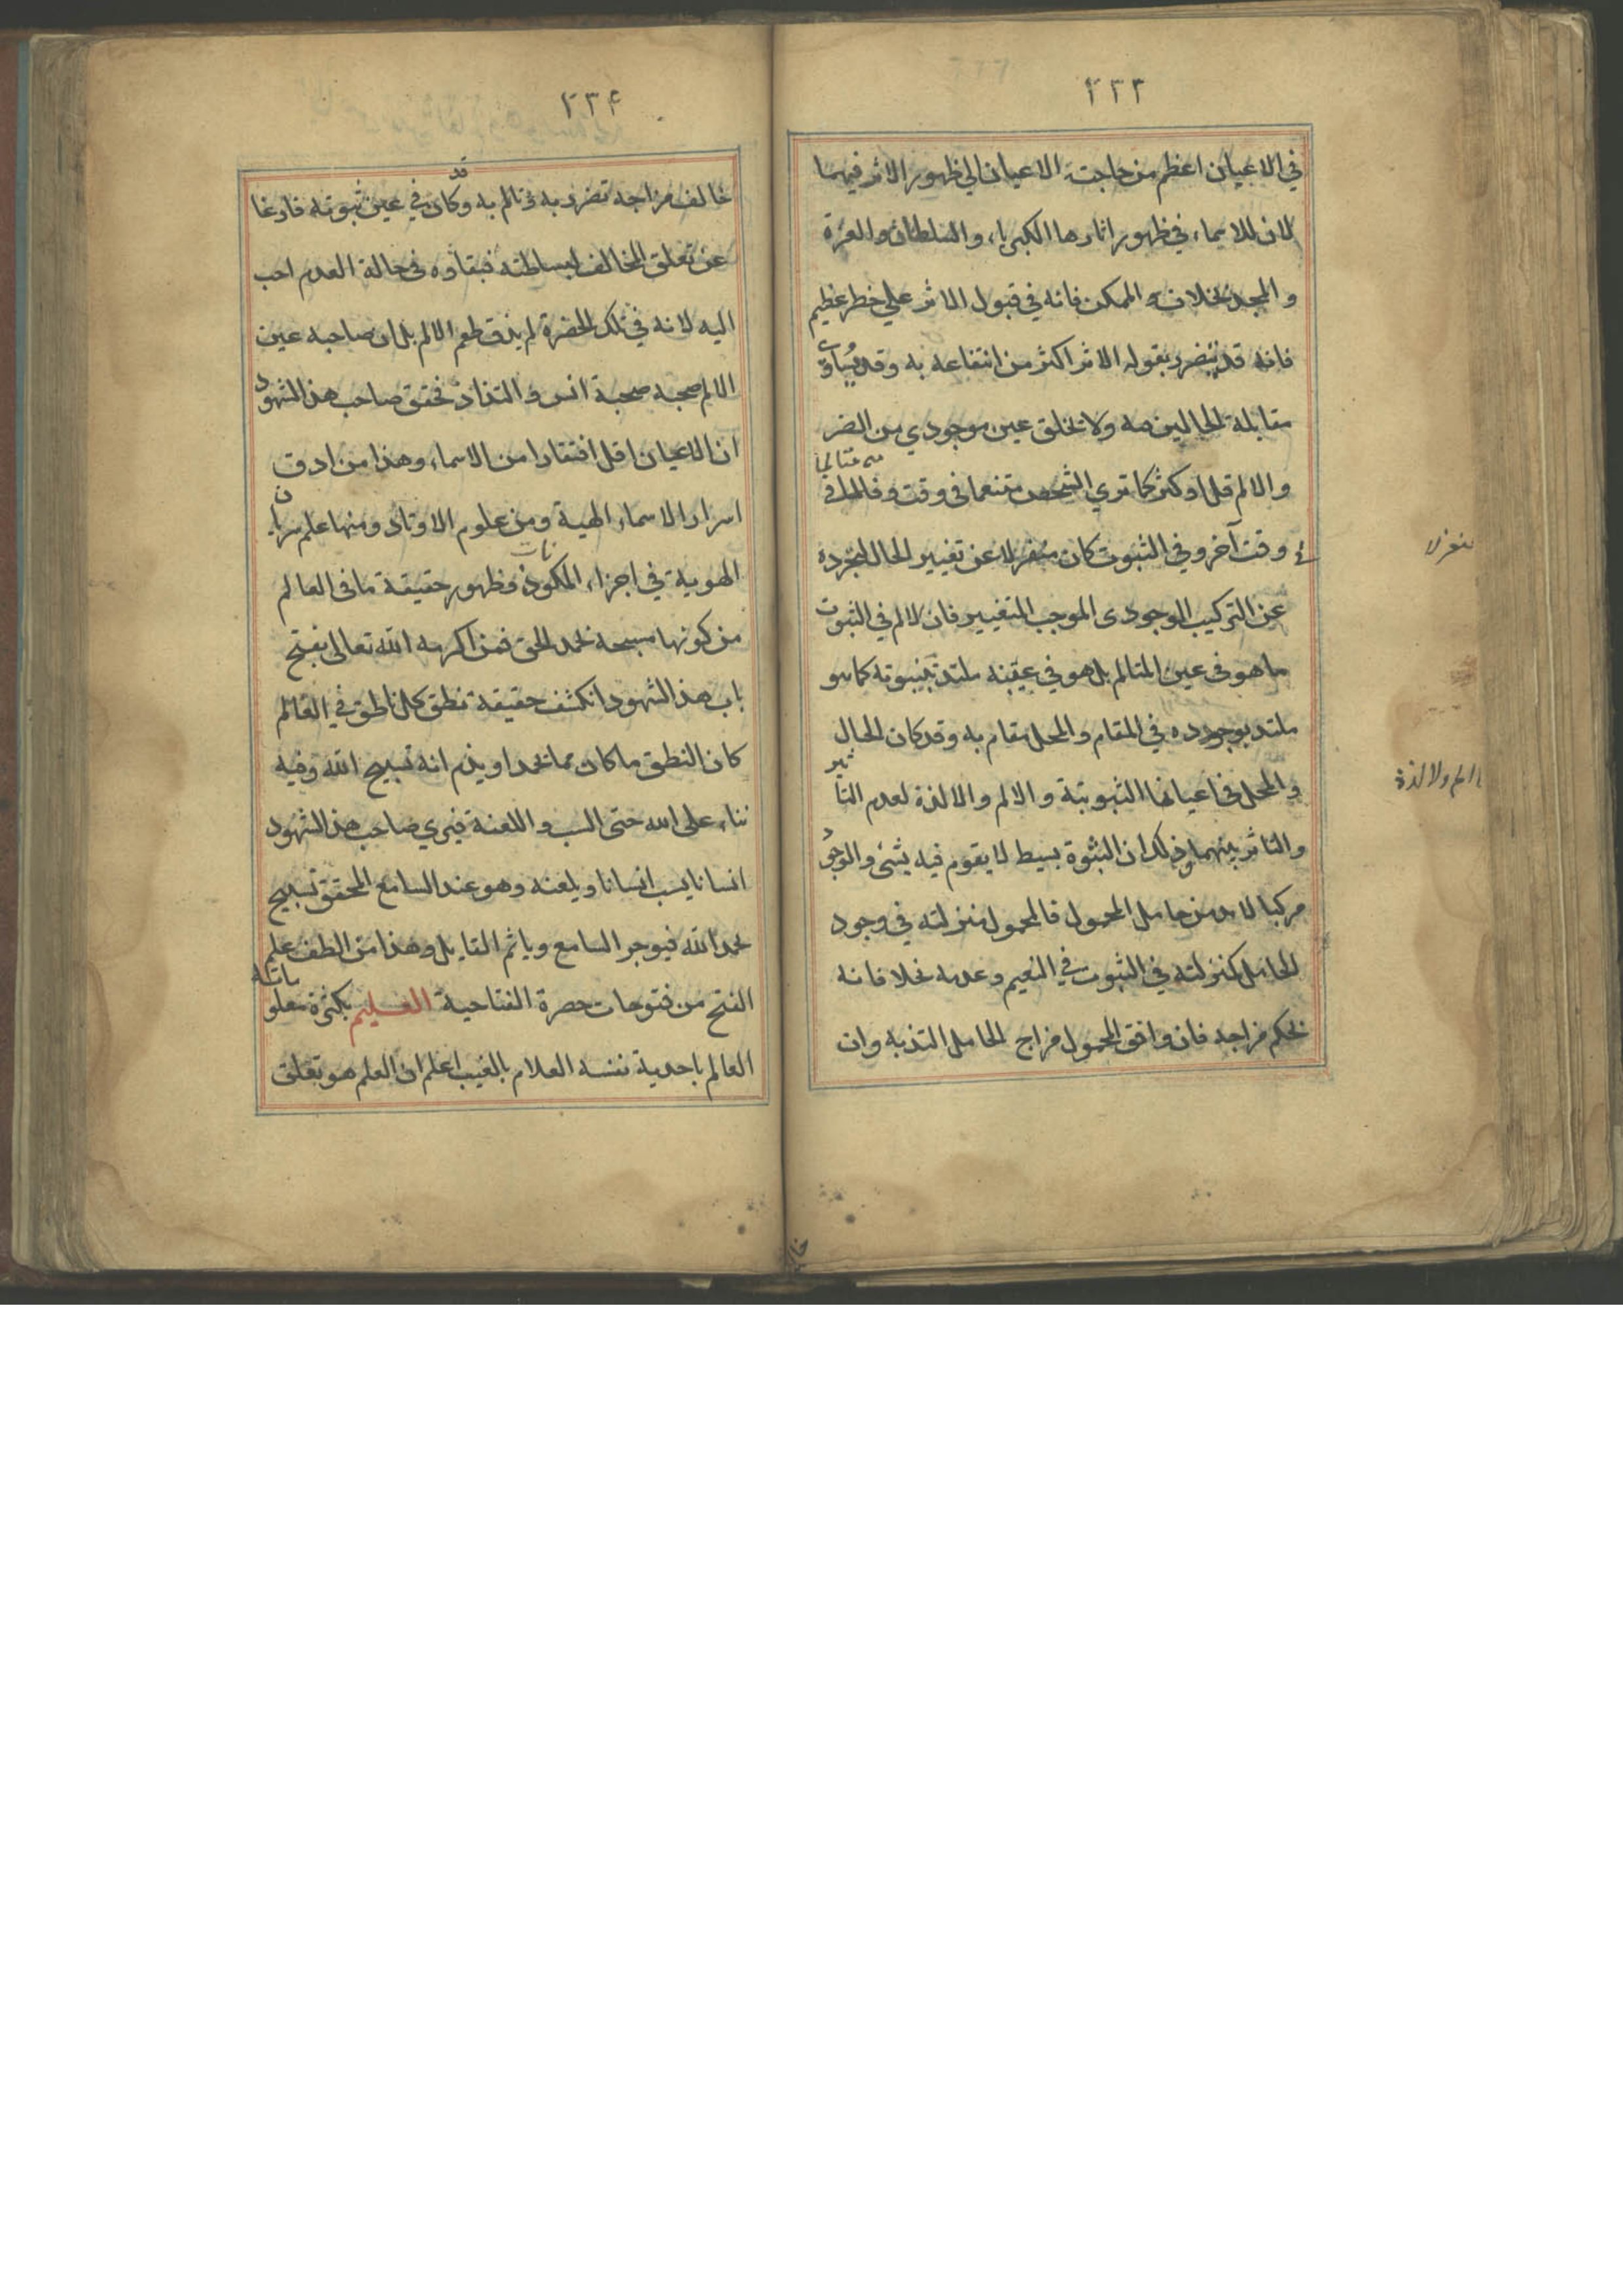 ٢٣٣
في الاعيان اعظم من حاجت الاعيان الي ظهور الاثر فيهما
لان للاسماء في ظهور اثارها الكبرياء والسلطان والعزة
والمجد بخلاف الممكن فانه في قبول الاثر علي خطر عظيم
فانه قد يتضرر بقوله الاثر اكثر من انتفاعه به وقد
مقابلة الحالين ولا تخلق عين موجودي من الضر
والالم قل او كثر كما تري الشخص متنعما في وقت و في
وقت آخر وفي الثبوت كان عن تغيير الحال لتجرده
عن التركيب الوجودى الموجب المتغيير فان لا لم في الثبوت
ما هو في عين المتالم بل هو في عينه ملتد بثبوته كما هو
ملتد بوجوده في المقام والمحل مقام به وقد كان الحال
و المحل في اعيانها الثبوتية و الالم و الالذة لعدم التا ثير
والتاثر بينهما وذلك ان الثبوة بسيط لا يقوم فيه بشئ والوجو
مركبا لا بد من حامل المحمول فالمحمول منزلته في وجود
الحامل كمنزلته في الثبوت في النعيم وعدمه بخلافانه
بحكم مزاجه فان وافق المحمول مزاج الحامل التذ به وان
منعزلا
الم ولا لذة
٢٣۴
خالف مزاجه تضرر به و تالم به وكان قد في عين ثبوته فارغا
عن تعلق المخالف لبساطته فبقاؤه في حالة العدم احب
اليه لانه في تلك الحضرة لم يذق طعم الالم بل ان صاحبه عين
الالم صحبه صحبة انس و التذاذ فحقق صاحب هذ الشهود
ان الاعيان اقل افتقارا من الاسماء وهذا من ادق
اسرار الاسماء الهية و من علوم الاوتاد ومنها علم سريان
الهوية في اجزاء المكونات وظهور حقيقة ما في العالم
من كونها مسبحه بحمد الحق فمن اكرمه الله تعالى بفتح
باب هذ الشهود انكشف حقيقة نطق كل ناطق في العالم
كان النطق ما كان مما يحمد او يذم انه تسبيح الله وفيه
ثناء على الله حتى السب و اللعنة فيري صاحب هذ الشهود
انسانا يسب انسانا ويلعنه وهو عند السامع المحقق تسبيح
بحمد الله فيوجر السامع وياثم القايل وهذا من الطف علم
الفتح من فتوحات حضرة الفتاحية العليم بكثرة معلوماته
العالم باحدية نفسه العلام بالغيب اعلم ان العلم هو تعلق